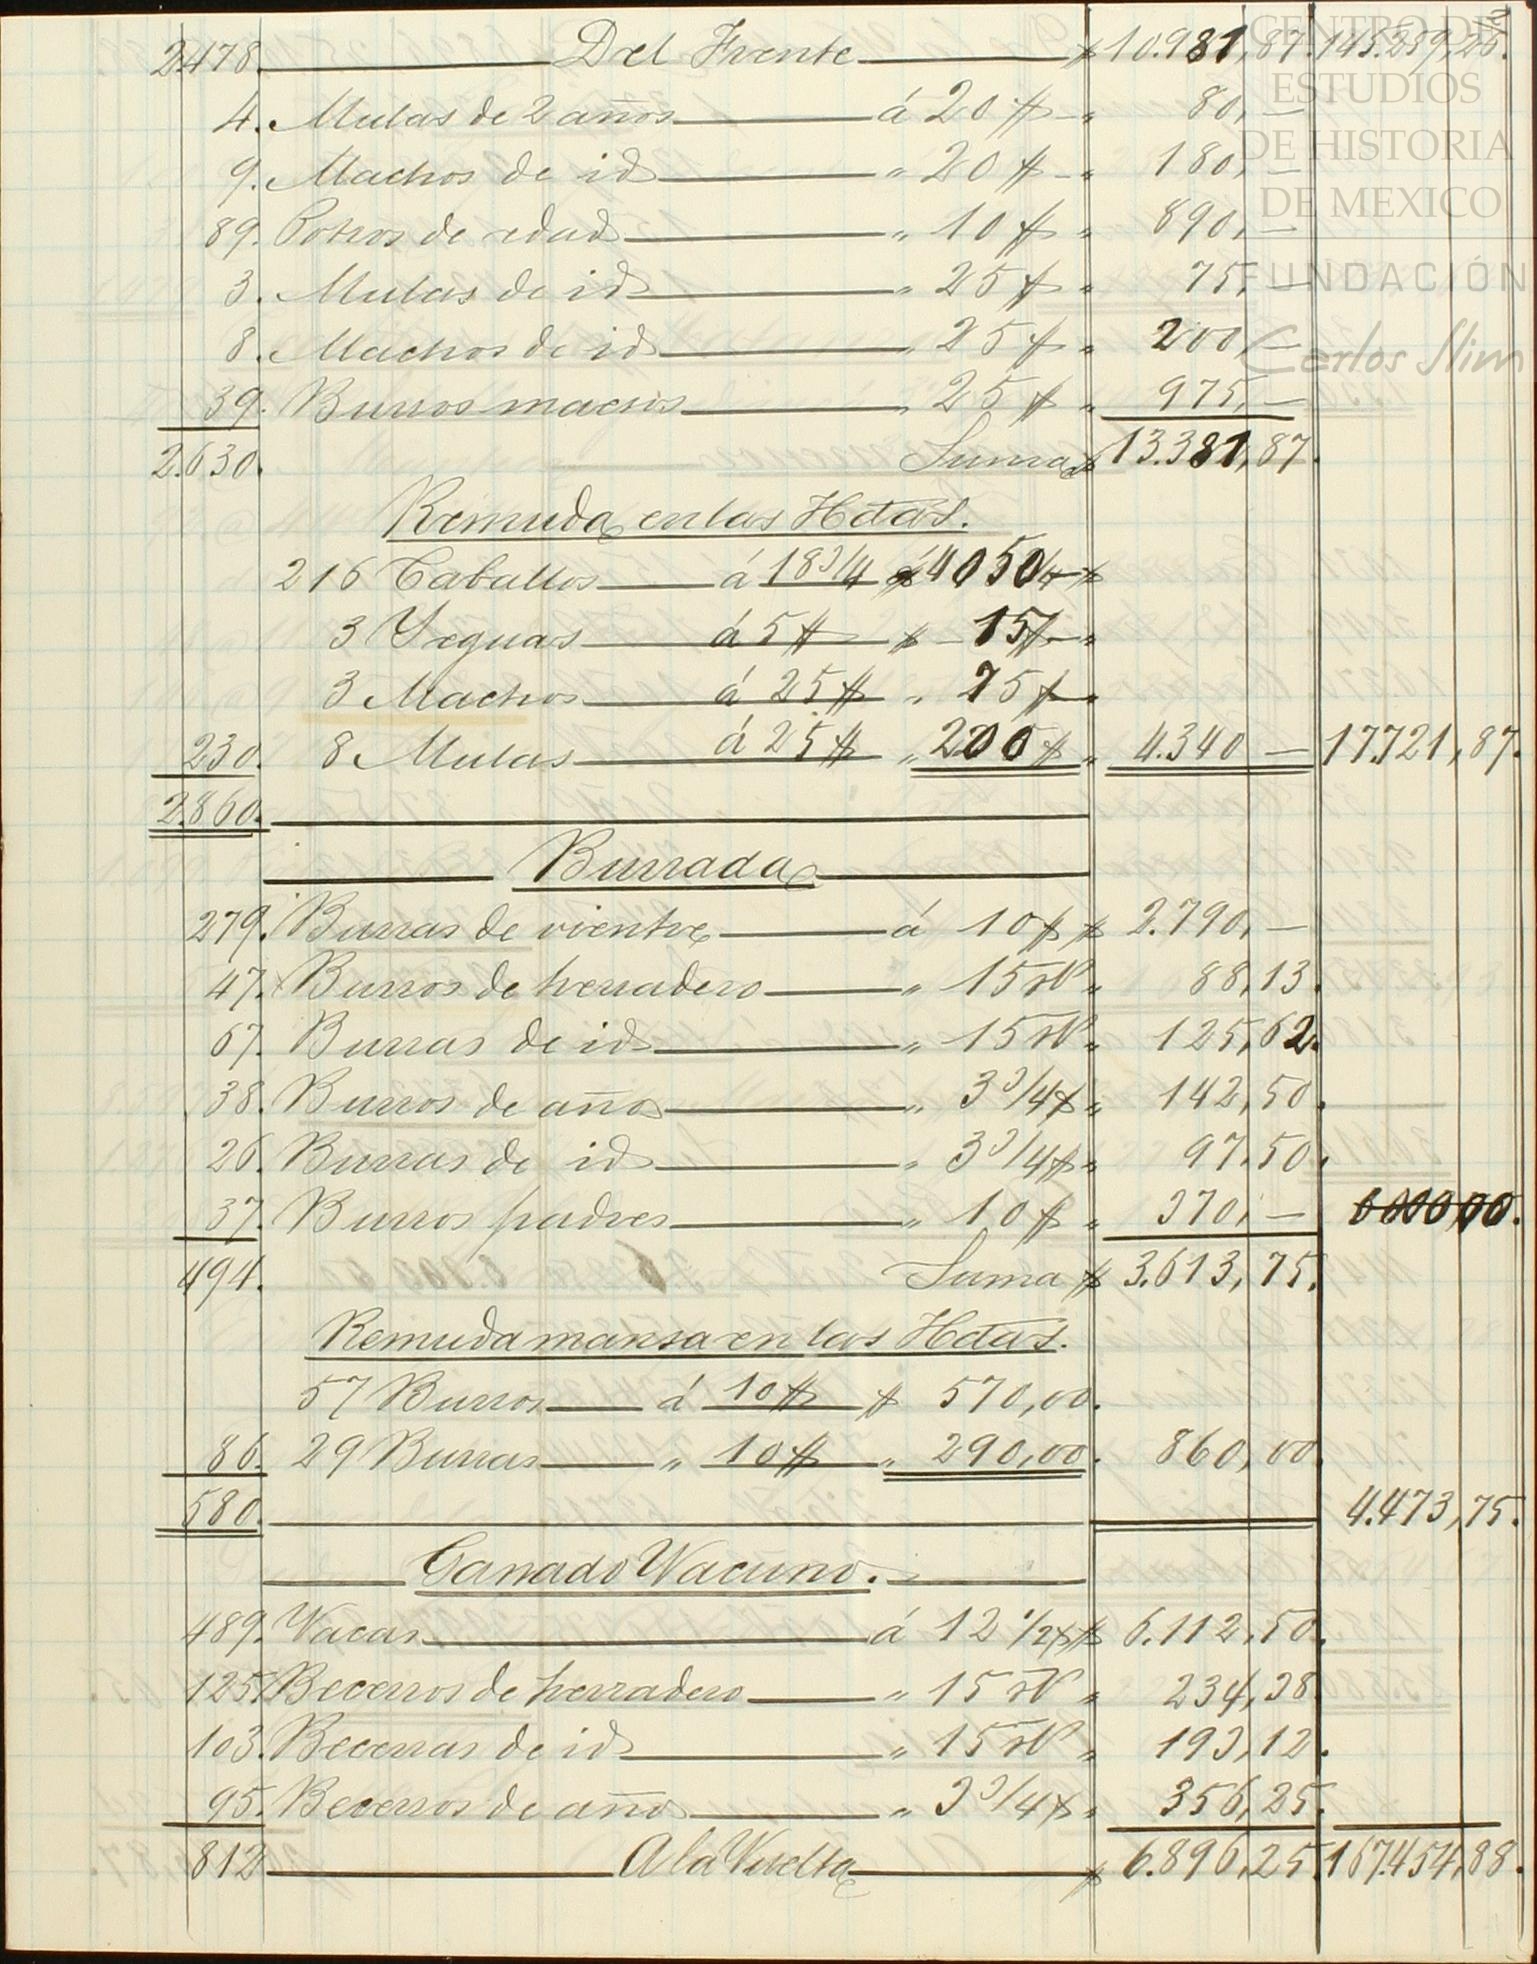 2
2.478. Del Frente $ 10.981,87. 145.259,25.
4. Mulas de 2 años á 20 $ " 80, —
9. Machos de id " 20 $ " 180, —
89. Potros de edad " 10 $ " 890, —
3. Mulas de id " 25 $ " 75, —
8. Machos de id " 25 $ " 200, —
39. Burros macsos " 25 $ " 975, —
2.630. Suma $ 13.381,87.
Remuda en las Hdas.
216 Caballos á 18 3/4 $ 4050 $
3 Yeguas á 5 $ $ 15 $ "
3 Machos á 25 $ " 75 $ "
230. 8 Mulas á 25 $ " 200 $ " 4.340 — 17.721,87.
2.860.
Burrada
279. Burras de vientre á 10 $ $ 2.790, —
47. Burros de herradero " 15 rs " 88,13.
67. Burras de id " 15 rs " 125,62.
38. Burros de año " 3 3/4 $ " 142,50.
26. Burras de id " 3 3/4 $ " 97,50.
37. Burros padres " 10 $ " 370, —
494. Suma $ 3.613,75.
Remuda mansa en las Hdas.
57 Burros á 10 $ $ 570,00.
86. 29 Burras " 10 $ " 290,00. 860,00
580. 4.473,75.
Ganado Vacuno.
489. Vacas á 12 1/2 $ $ 6.112,50.
125. Becerros de herradero " 15 rs " 234,38
103. Becerras de id " 15 rs " 193,12.
95. Becerros de año " 3 3/4 $ " 356,25.
812 A la Vuelta $ 6.896,25. 167.454,88.
CENTRO DE
ESTUDIOS
DE HISTORIA
DE MEXICO
FUNDACIÓN
Carlos Slim